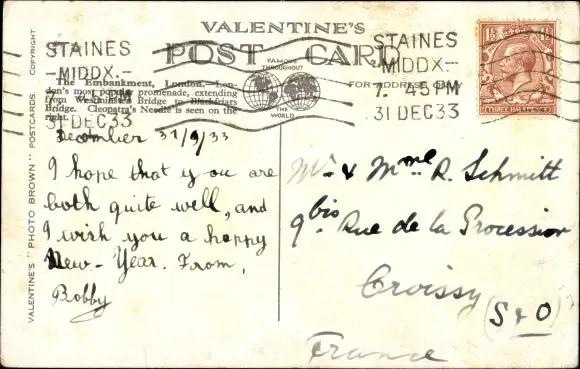 VALENTINE'S
POST CARD
FAMOUS THROUGHOUT
THE WORLD
FOR ADDRESS ONLY
STAINES
-MIDDX.-
PM
31 DEC 33
STAINES
-MIDDX-
7. 45 PM
31 DEC 33
THREE HALFPENCE
The Embankment, London. Lon-
don's most popular promenade, extending
from Westminster Bridge to Blackfriars
Bridge. Cleopatra's Needle is seen on the
right.
December 31/9/33
I hope that you are
both quite well, and
I wish you a happy
New-Year. From,
Bobby
Mr & Mme R. Schmitt
9bis Rue de la Procession
Croissy
(S & O)
France
VALENTINE'S "PHOTO BROWN" POSTCARDS. COPYRIGHT